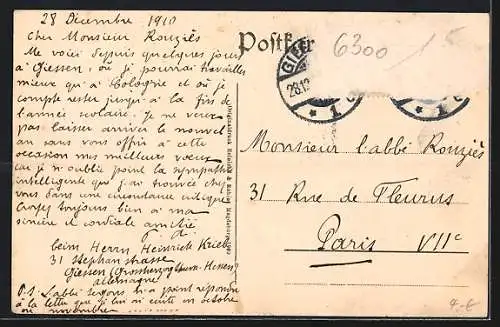 28 Décembre 1910
Cher Monsieur Rouziès
Me voici depuis quelques jours
à Giessen, où je pourrai travailler
mieux qu'à Cologne et où je
compte rester jusqu'à la fin de
l'année scolaire. Je ne veux
pas laisser arriver le nouvel
an sans vous offrir à cette
occasion mes meilleurs voeux
car je n'oublie point la sympathie
intelligente que j'ai trouvée chez
vous dans une circonstance critique
Croyez toujours bien à ma
sincère et cordiale amitié
beim Herrn Heinrich
31 Stephanstrasse
Giessen (Grossherzogthum-Hessen)
allemagne
P.S. L'abbé n'a point répondre
à la lettre que je lui ai écrite en octobre
ou novembre ..........
Postkarte
6300
5
GIE
28.12
* 1
* 1
Monsieur l'abbé Rouziès
31 Rue de Fleurus
Paris VIIe